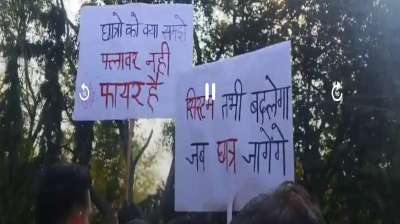 छात्रो को क्या समझे
फ्लावर नही
फायर है
सिस्टम तभी बदलेगा
जब छात्र जागेंगे